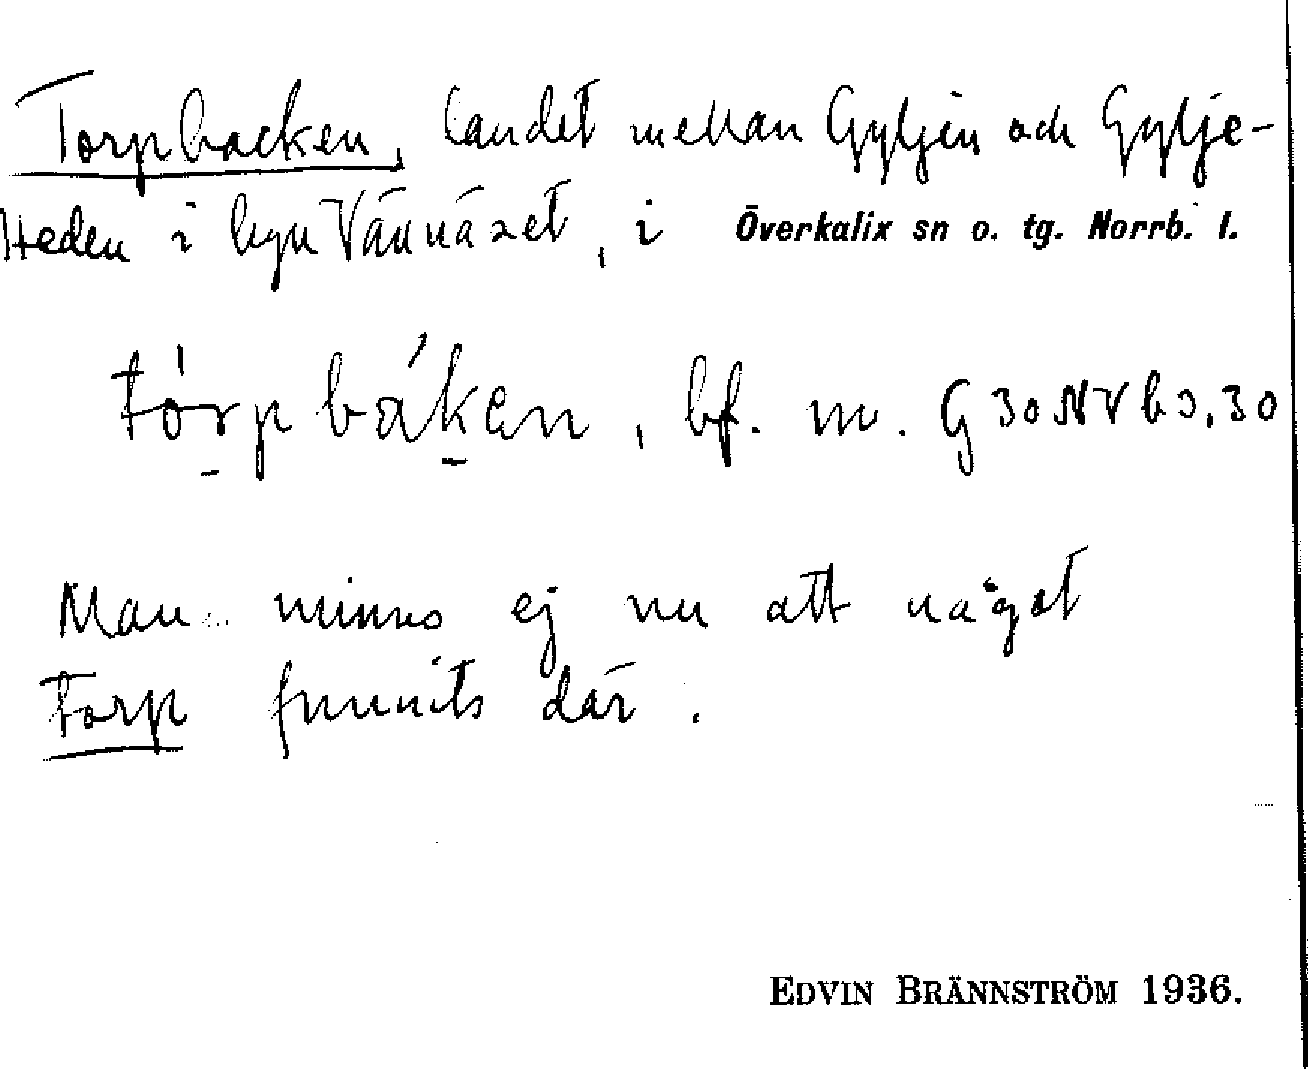 Torpbacken, landet mellan Gyljen och Gylje-
heden i byn Vännäset, i Överkalix sn o. tg. Norrb. l.
tórpbáken, bf. m. G30NVb3,30
Man minns ej nu att något
torp funnits där.
EDVIN BRÄNNSTRÖM 1936.